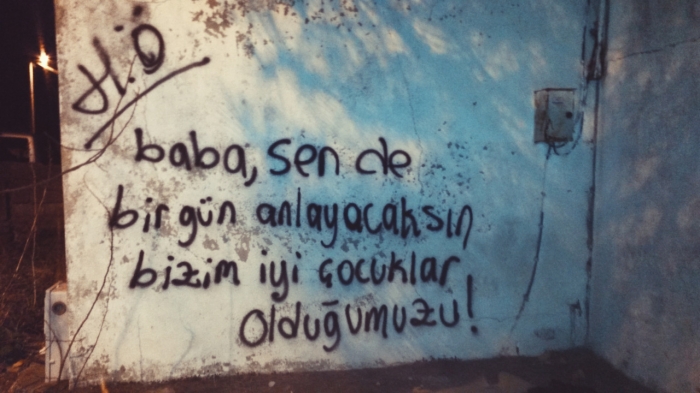 H.Ö
baba, sen de
bir gün anlayacaksın
bizim iyi çocuklar
olduğumuzu!